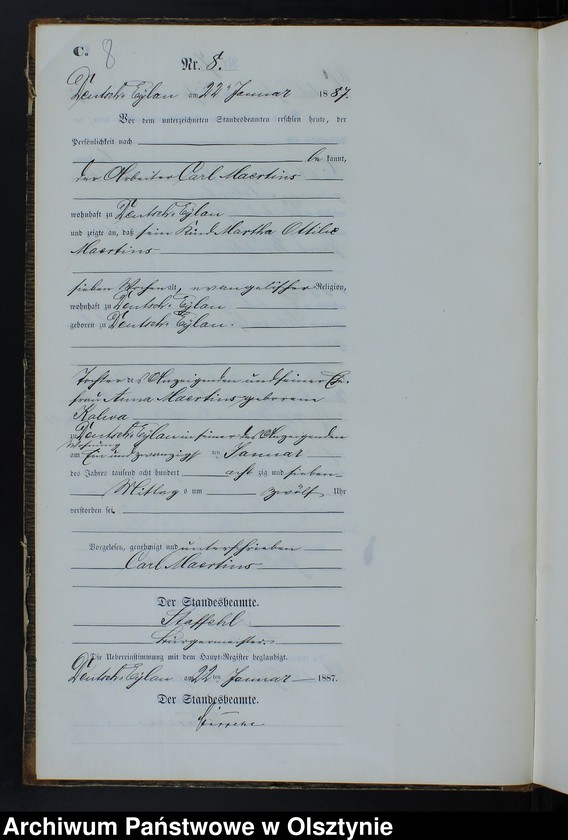 C. 8
Nr. 8.
Deutsch Eylau am 22ten Januar 1887.
Vor dem unterzeichneten Standesbeamten erschien heute, der
Persönlichkeit nach
bekannt,
der Arbeiter Carl Maertins
wohnhaft zu Deutsch Eylau
und zeigte an, daß sein Kind Martha Ottilie
Maertins
sieben Wochen alt, evangelischer Religion,
wohnhaft zu Deutsch Eylau
geboren zu Deutsch Eylau.
Tochter des Anzeigenden und seiner Ehe-
frau Anna Maertins geborene
Kaliva
zu Deutsch Eylau in seiner des Anzeigenden
Wohnung
am Ein und zwanzigsten Januar
des Jahres tausend acht hundert acht zig und sieben
Mittags um zwölf Uhr
verstorben sei.
Vorgelesen, genehmigt und unterschrieben
Carl Maertins
Der Standesbeamte.
Staffehl
Bürgermeister
Die Uebereinstimmung mit dem Haupt-Register beglaubigt.
Deutsch Eylau am 22ten Januar 1887.
Der Standesbeamte.
Archiwum Państwowe w Olsztynie